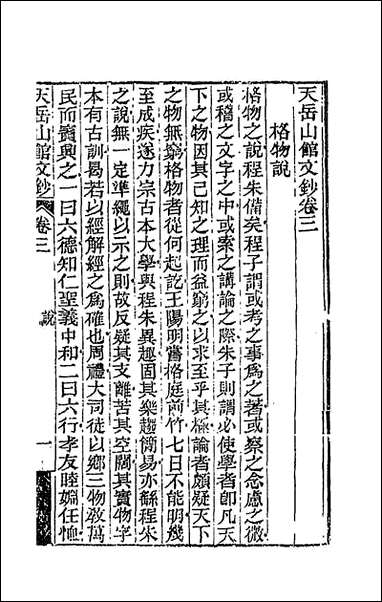 天岳山館文鈔卷三
格物說
格物之說程朱備矣程子謂或考之事爲之著或察之念慮之微
或稽之文字之中或索之講論之際朱子則謂必使學者卽凡天
下之物因其已知之理而益窮之以求至乎其極論者頗疑天下
之物無窮格物者從何起訖王陽明嘗格庭前竹七日不能明幾
至成疾遂力宗古本大學與程朱異趣固其樂趨簡易亦繇程朱
之說無一定準繩以示之則故反疑其支離苦其空闊其實物字
本有古訓曷若以經解經之爲確也周禮大司徒以鄉三物敎萬
民而賓興之一曰六德知仁聖義中和二曰六行孝友睦婣任恤
天岳山館文鈔 卷三 說 一